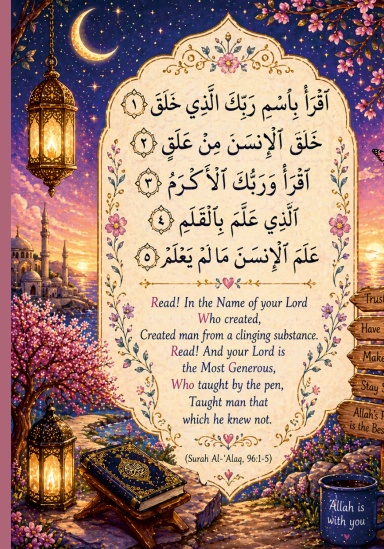 ٱقْرَأْ بِٱسْمِ رَبِّكَ الَّذِي خَلَقَ ١
خَلَقَ ٱلْإِنسَنَ مِنْ عَلَقٍ ٢
ٱقْرَأْ وَرَبُّكَ ٱلْأَكْرَمُ ٣
ٱلَّذِي عَلَّمَ بِٱلْقَلَمِ ٤
عَلَمَ ٱلْإِنسَنَ مَا لَمْ يَعْلَمْ ٥
Read! In the Name of your Lord
Who created,
Created man from a clinging substance.
Read! And your Lord is
the Most Generous,
Who taught by the pen,
Taught man that
which he knew not.
(Surah Al-'Alaq, 96:1-5)
Trust
Have
Make
Stay
Allah's
is the Bes
Allah is
with you